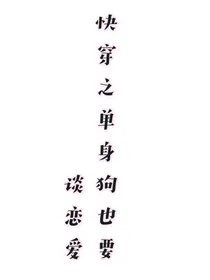 快穿之单身狗也要
谈恋爱